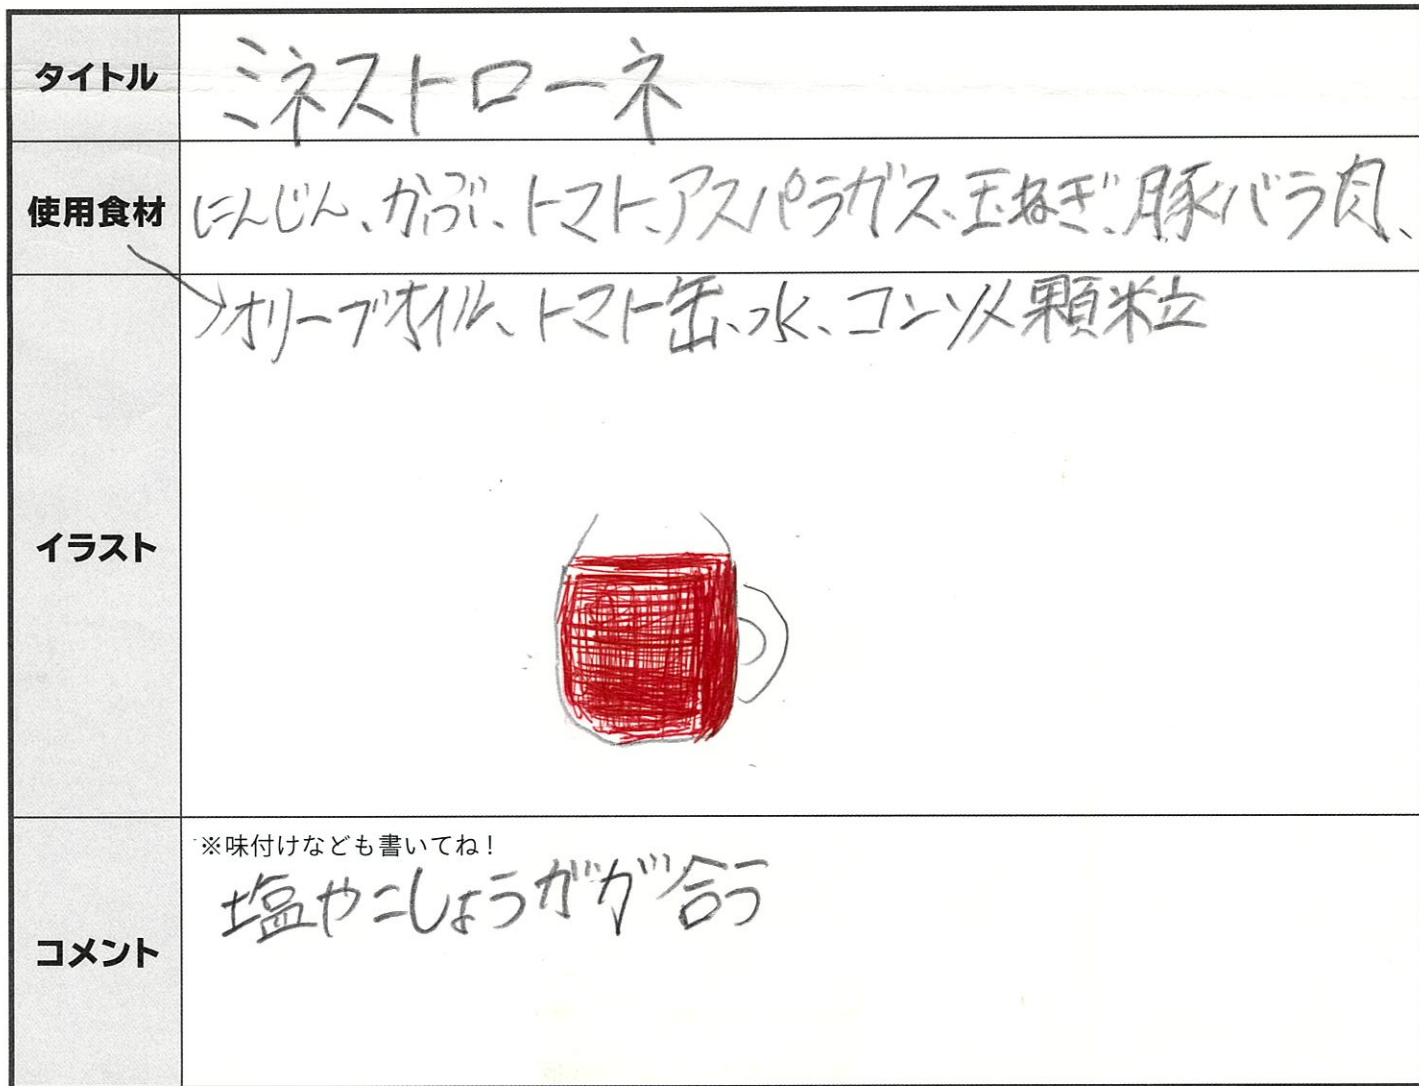 タイトル ミネストローネ
使用食材 にんじん、かぶ、トマト、アスパラガス、玉ねぎ、豚バラ肉、
オリーブオイル、トマト缶、水、コンソメ顆粒
イラスト
※味付けなども書いてね!
塩やこしょうがが合う
コメント